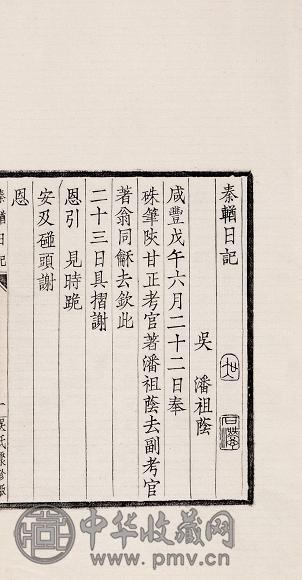 秦輶日記
吳 潘祖蔭
咸豐戊午六月二十二日奉
硃筆陝甘正考官著潘祖蔭去副考官
著翁同龢去欽此
二十三日具摺謝
恩引 見時跪
安及碰頭謝
恩
秦輶日記
一
中华收藏网
www.pmv.cn